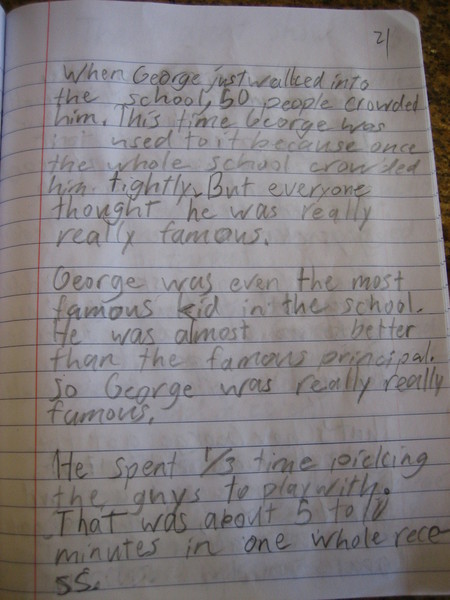 21
When George just walked into
the school, 50 people crowded
him. This time George was
used to it because once
the whole school crowded
him tightly. But everyone
thought he was really
really famous.
George was even the most
famous kid in the school.
He was almost better
than the famous principal.
So George was really really
famous.
He spent 1/3 time picking
the guys to play with.
That was about 5 to
minutes in one whole rece
ss.